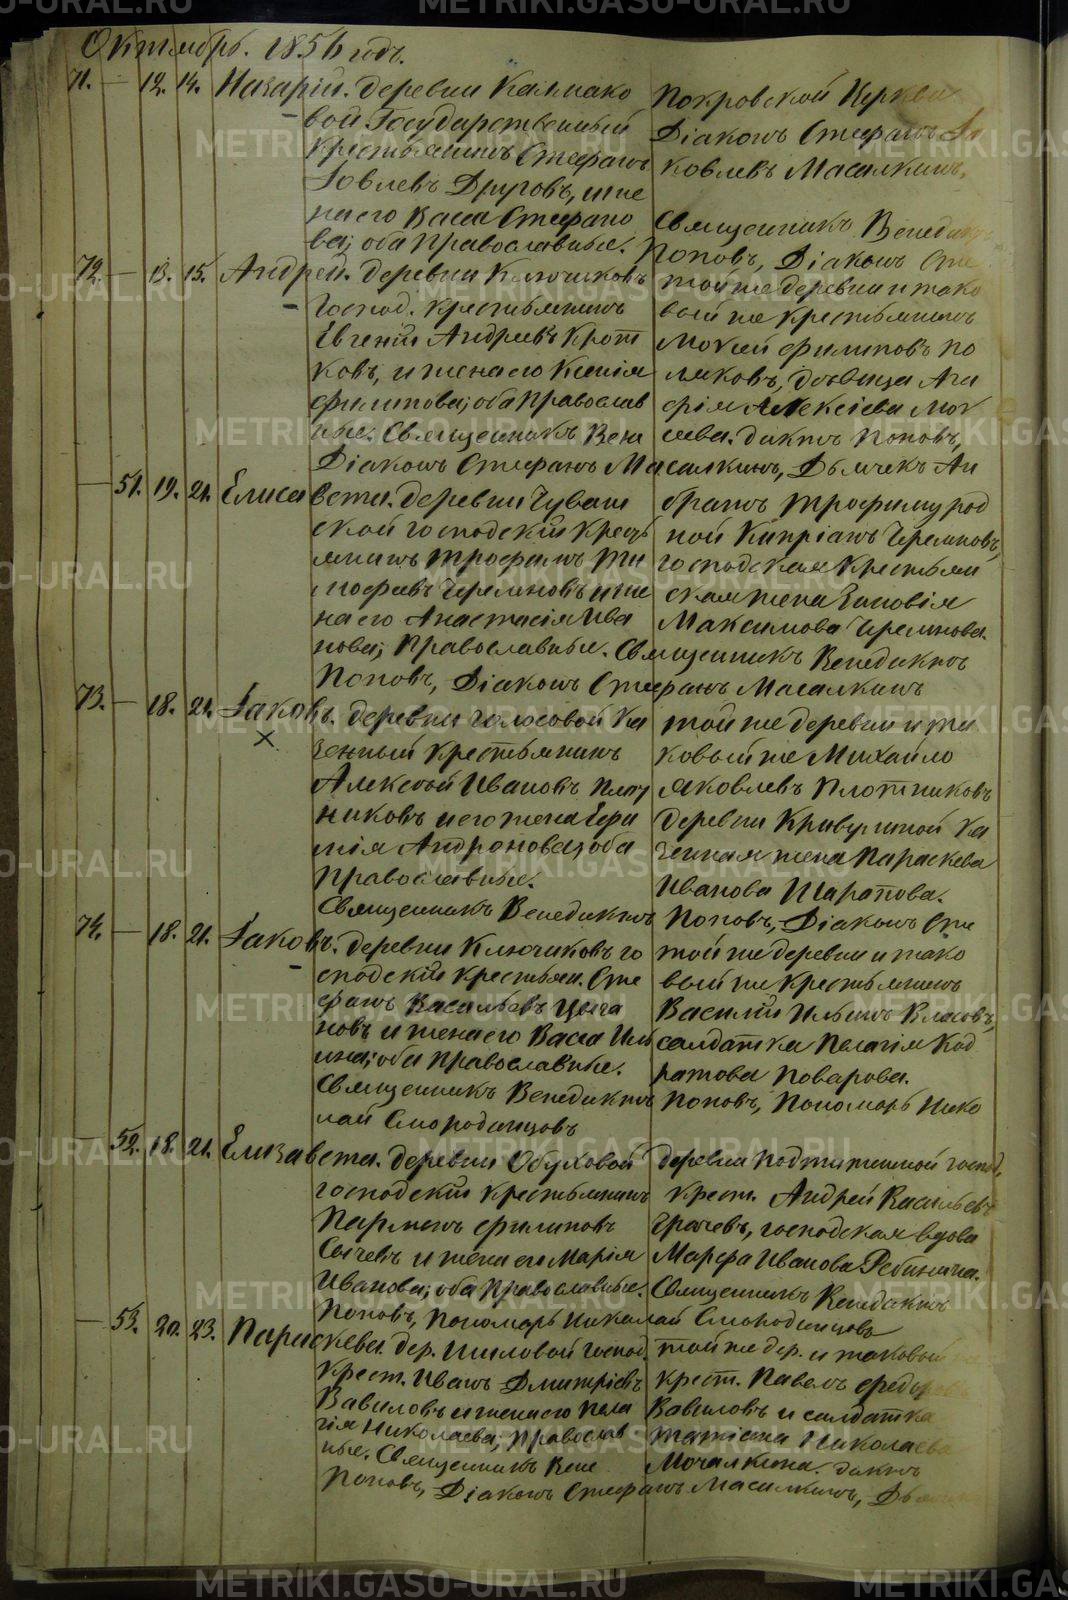 Октябрь. 1856 годъ.
71. — 12. 14. Назарій. деревни Калмако
вой Государственный
крестьянинъ Стефанъ
Іовлевъ Друговъ, и же
на его Васса Стефано
ва; оба православные.
Покровской Церкви
Діаконъ Стефанъ Іа
ковлевъ Масалкинъ.
Священникъ Венедиктъ
Поповъ, Діаконъ Сте
72. — 13. 15. Андрей. деревни Ключиковъ
господ. крестьянинъ
Евгеній Андреевъ Крот
ковъ, и жена его Ксенія
Филипова; оба православ
ные. Священникъ Вене
Діаконъ Стефанъ Масалкинъ, Дьячекъ Ан
той же деревни и тако
вый же крестьянинъ
Моисей Филиповъ По
ляковъ, девица Ага
фія Алексіева Мои
сеева. диктъ Поповъ,
— 51. 19. 21. Елисавета. деревни Чуваш
ской господскій кресть
янинъ Трофимъ Ти
мофеевъ Черемновъ и же
на его Анастасія Ива
нова; православные. Священникъ Венедиктъ
Поповъ, Діаконъ Стефанъ Масалкинъ
братъ Трофиму род
ной Кипріанъ Черемновъ,
господская крестьян
ская жена Зиновія
Максимова Черемнова.
73. — 18. 21. Іаковъ. деревни Голосовой ка
×
зенный крестьянинъ
Алексей Ивановъ Плот
никовъ и его жена Ефи
мія Андронова; оба
православные.
той же деревни и та
ковый же Михайло
Яковлевъ Плотниковъ
деревни Криулиной ка
зенная жена Параскева
Иванова Шарапова.
Священникъ Венедиктъ Поповъ, Діаконъ Сте
74. — 18. 21. Іаковъ. деревни Ключиковъ го
сподскій крестьян. Сте
фанъ Васильевъ Цыга
новъ и жена его Васса Иль
ина; оба православные.
той же деревни и тако
вый же крестьянинъ
Василій Ильинъ Власовъ,
салдатка Пелагія Код
ратова Поварова.
Священникъ Венедиктъ Поповъ, Пономарь Нико
лай Смородинцовъ
— 52. 18. 21. Елизавета. деревни Обуховой
господскій крестьянинъ
Парменъ Филиповъ
Сычевъ и жена его Марія
Иванова; оба православные.
деревни Подтыжинной господ,
крест. Андрей Васильевъ
Грачевъ, господская вдова
Марфа Иванова Ребинина.
Священникъ Венедиктъ
Поповъ, Пономарь Николай Смородинцовъ
— 53. 20. 23. Параскева. дер. Шиловой господ.
крест. Иванъ Дмитріевъ
Вавиловъ и жена его Пела
гія Николаева; православ
ные. Священникъ Вене
той же дер. и таковый
крест. Павелъ Федоровъ
Вавиловъ и салдатка
Татіана Николаева
Мочалкина. диктъ
Поповъ, Діаконъ Стефанъ Масалкинъ,
METRIKI.GASO-URAL.RU